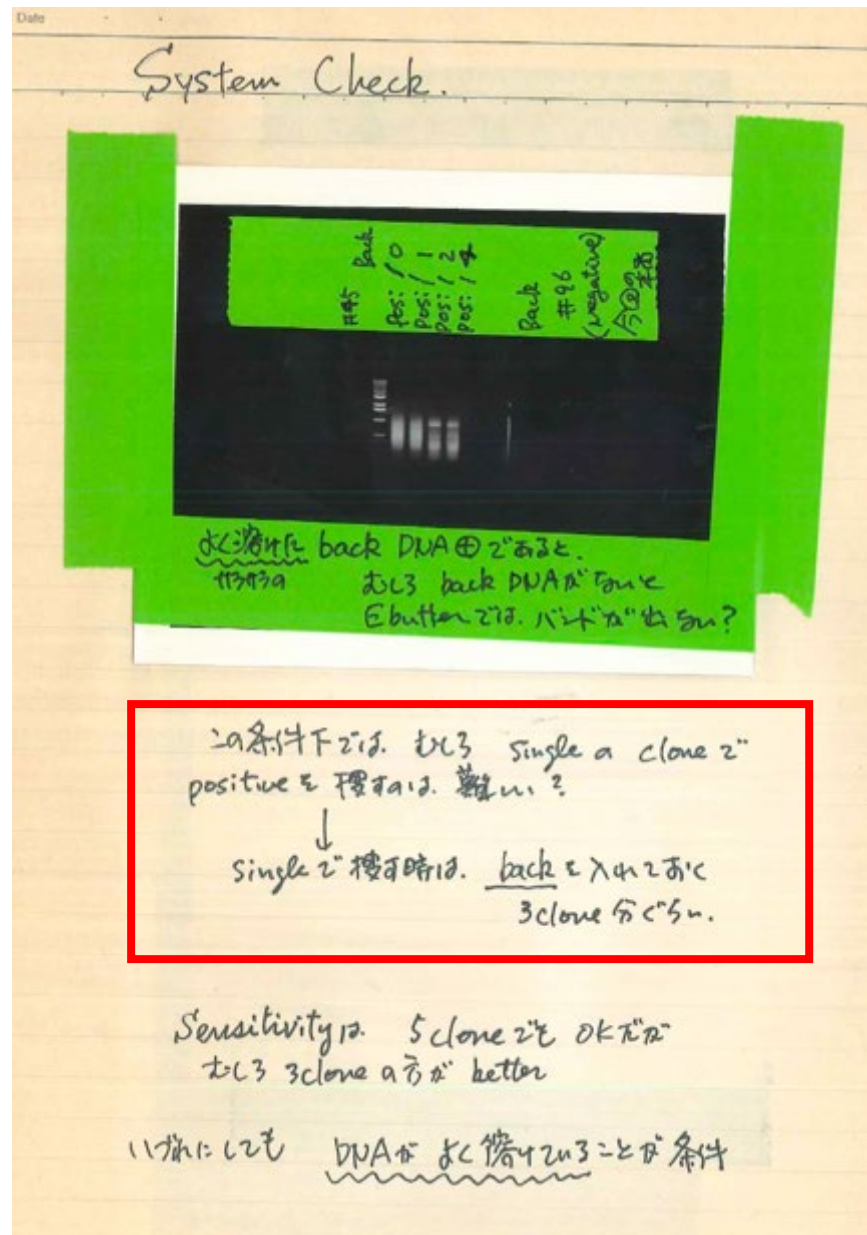 Date
System Check.
#45
Back
Posi / 0
Posi / 1
Posi / 2
Posi / 4
Back
#96
(Negative)
今回の本番
よく溶けた back DNA⊕であると.
サラサラの むしろ back DNAがないと
E bufferでは. バンドが出ない?
この条件下では. むしろ singleの cloneで
positiveを 捜すのは. 難しい?
↓
singleで 捜す時は. backを入れておく
3clone分ぐらい.
Sensitivityは. 5cloneでも OKだが
むしろ 3cloneの方が better
いづれにしても DNAが よく溶けていることが 条件